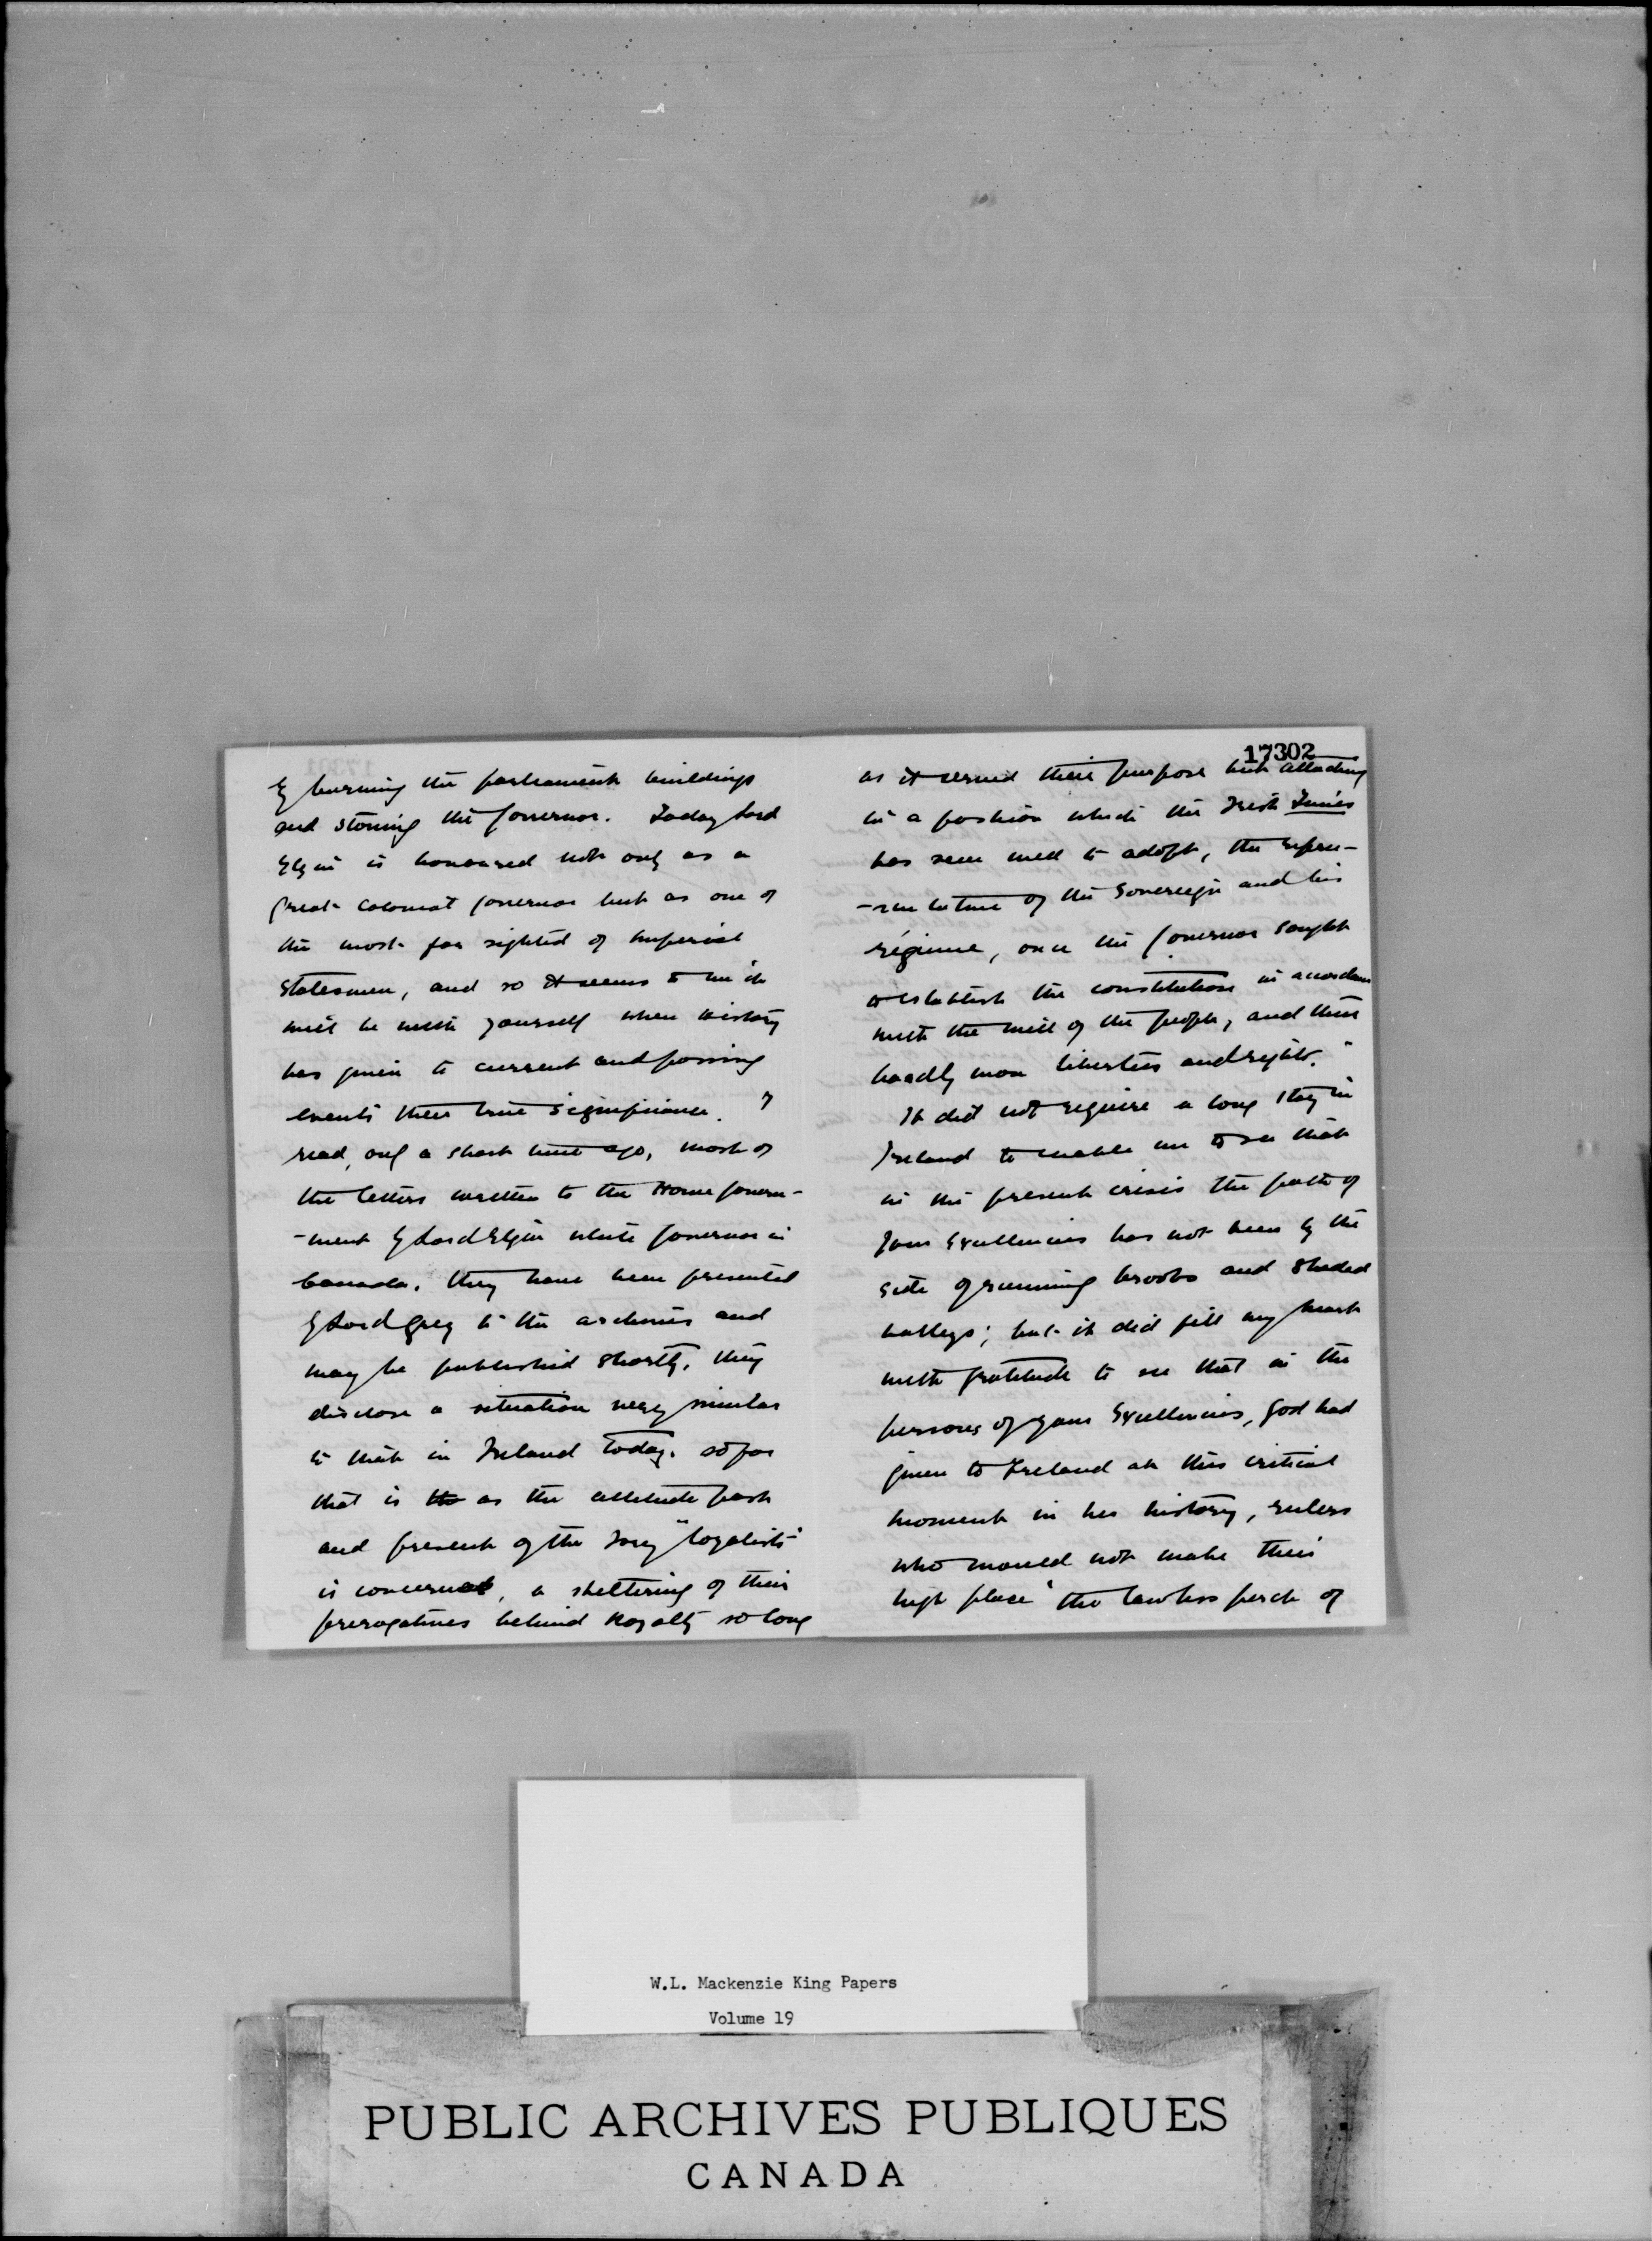 by burning the parliament buildings
and stoning the Governor. Today Lord
Elgin is honoured not only as a
great colonial governor but as one of
the most far sighted of imperial
statesmen, and so it seems to me it
will be with yourself when history
has given to current and passing
events their true significance. I
read, only a short time ago, most of
the letters written to the Home Govern-
-ment by Lord Elgin while Governor in
Canada. They have been presented
by Lord Grey to the archives and
may be published shortly. They
disclose a situation very similar
to that in Ireland today. so far
that is the as the attitude past
and present of the Tory "loyalists"
is concerned, a sheltering of their
prerogatives behind Royalty so long
17302
as it served their purpose but attacking
in a fashion which the Irish Times
has seen well to adopt, the repre-
-sentative of the Sovereign and his
régime, once the Governor sought
to establish the constitution in accordance
with the will of the people, and their
hardly won liberties and rights."
It did not require a long stay in
Ireland to enable me to see that
in the present crisis the path of
Your Excellencies has not been by the
side of running brooks and shaded
valleys; but it did fill my heart
with gratitude to see that in the
persons of your Excellencies, God had
given to Ireland at this critical
moment in her history, rulers
who would not make their
high place "the lawless perch of
W.L. Mackenzie King Papers
Volume 19
PUBLIC ARCHIVES PUBLIQUES
CANADA